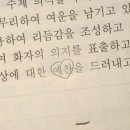 주제 의식을
무리하여 여운을 남기고 있
용하여 리듬감을 조성하고
여 화자의 의지를 표출하고
상에 대한 예찬을 드러내고